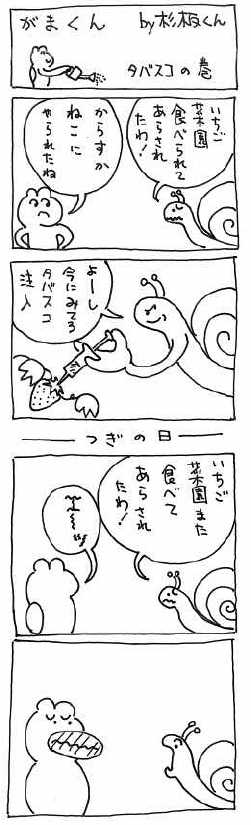 がまくん by杉板くん
タバスコの巻
いちご
菜園
食べられて
あらされ
たわ！
からすか
ねこに
やられたね
よーし
今にみてろ
タバスコ
注入
つぎの日
いちご
菜園また
食べて
あらされ
たわ！